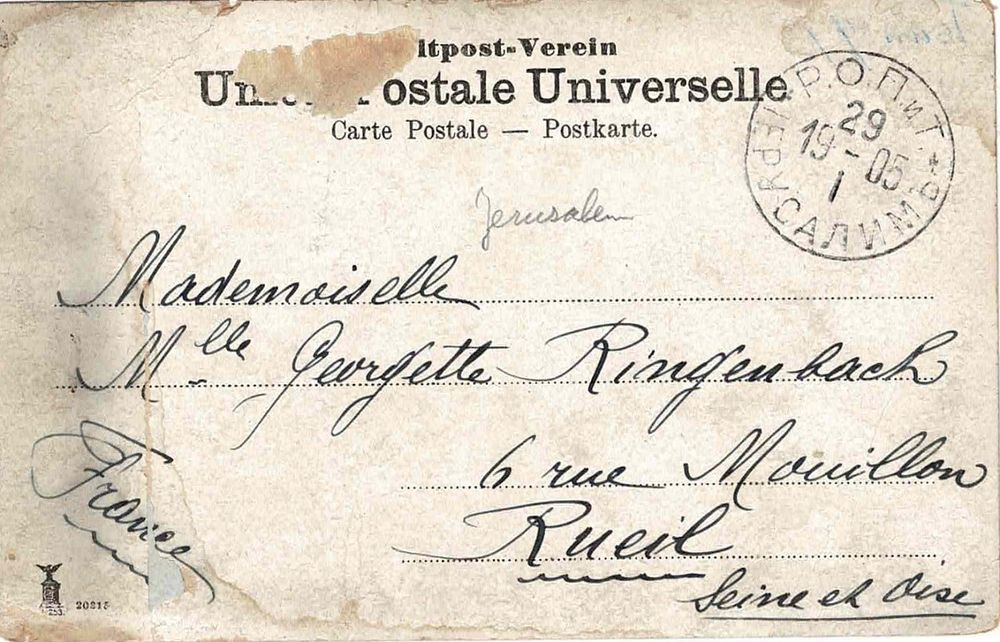 ltpost-Verein
Un Postale Universelle
Carte Postale — Postkarte.
Р.О.П и Т.
29
19-05
1
ІЕРУСАЛИМЪ
Jerusalem
Mademoiselle
Mlle Georgette Ringenbach
6 rue Mouillon
Rueil
Seine et Oise
France
20215